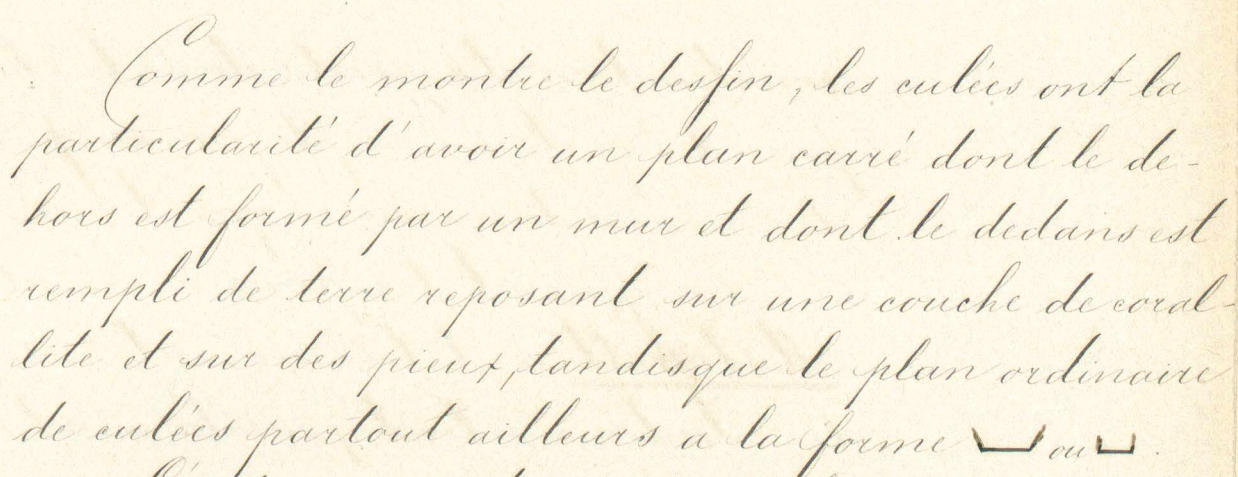 Comme le montre le dessin, les culées ont la
particularité d'avoir un plan carré dont le de-
hors est formé par un mur et dont le dedans est
rempli de terre reposant sur une couche de coral-
lite et sur des pieux, tandisque le plan ordinaire
de culées partout ailleurs a la forme ou .